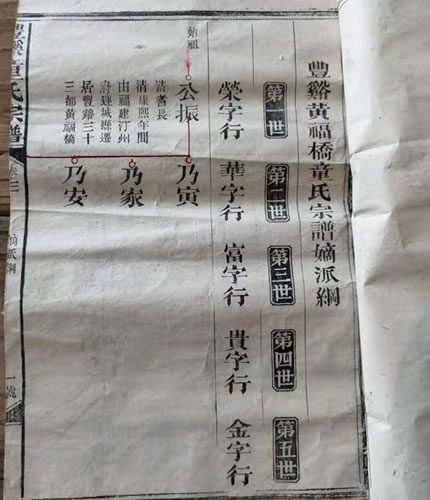 豐谿黃福橋童氏宗譜嫡派綱
第一世
第二世
第三世
第四世
第五世
榮字行
華字行
富字行
貴字行
金字行
始祖
公振
清耆長
清康熙年間
由福建汀州
府連城縣遷
居豐谿三十
三都黃福橋
乃寅
乃家
乃安
豐谿童氏宗譜
卷三
嫡派綱
一